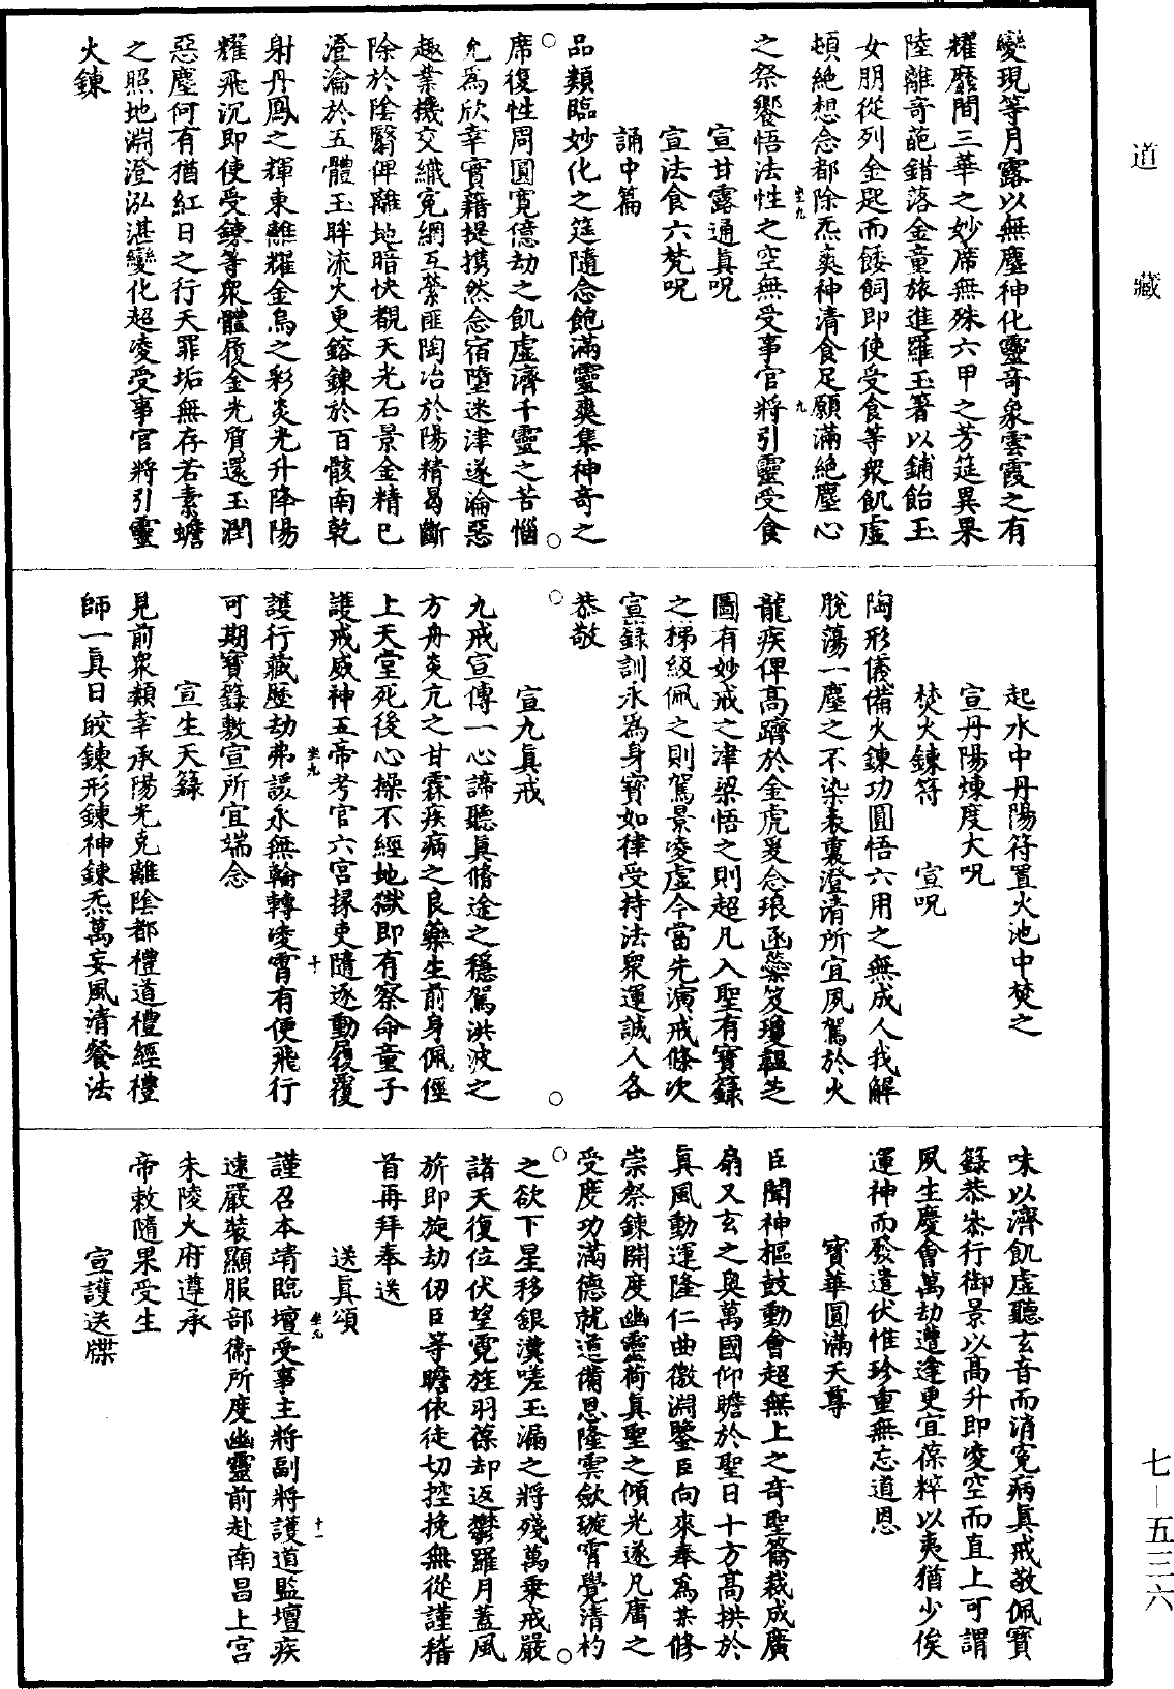 道藏
變現等月露以無塵神化靈奇象雲霞之有
耀靡間三華之妙席無殊六甲之芳筵異果
陸離奇葩錯落金童旅進羅玉筯以鋪飴玉
女朋從列金匙而餧飼即使受食等衆飢虛
頓絶想念都除炁爽神清食足願滿絶塵心
之祭饗悟法性之空無受事官將引靈受食
宣甘露通真呪
宣法食六梵呪
誦中篇
品類臨妙化之筵隨念飽滿靈爽集神奇之
席復性周圓寛億劫之飢虛濟千靈之苦惱
允爲欣幸實藉提携然念宿墮迷津遂淪惡
趣業機交織寃網互縈匪陶冶於陽精曷斷
除於陰翳俾離地暗快覩天光石景金精已
澄瀹於五體玉眸流火更鎔鍊於百骸南乾
射丹鳳之輝東離耀金烏之彩炎光升降陽
耀飛沉即使受鍊等衆體履金光質還玉潤
惡塵何有猶紅日之行天罪垢無存若素蟾
之照地淵澄泓湛變化超凌受事官將引靈
火鍊
起水中丹陽符置火池中焚之
宣丹陽煉度大呪
焚火鍊符　宣呪
陶形儀備火鍊功圓悟六用之無成人我解
脫蕩一塵之不染表裏澄清所宜夙駕於火
龍疾俾高躋於金虎爰念琅函蘂笈瓊韞芝
圖有妙戒之津梁悟之則超凡入聖有寶籙
之梯級佩之則駕景凌虛今當先演戒條次
宣籙訓永爲身寶如律受持法衆運誠人各
恭敬
宣九真戒
九戒宣傳一心諦聽真脩途之穩駕洪波之
方舟炎亢之甘霖疾病之良藥生前身佩徑
上天堂死後心操不經地獄即有察命童子
護戒威神五帝考官六宮掾吏隨逐動履覆
護行藏歷劫弗諼永無輪轉凌霄有便飛行
可期寶籙敷宣所宜端念
宣生天籙
見前衆類幸承陽光克離陰都禮道禮經禮
師一真日皎鍊形鍊神鍊炁萬妄風清餐法
味以濟飢虛聽玄音而消寃病真戒敬佩寶
籙恭叅行御景以高升即凌空而直上可謂
夙生慶會萬劫遭逢更宜葆粹以夷猶少俟
運神而發遣伏惟珍重無忘道恩
寳華圓滿天尊
臣聞神樞鼓動會超無上之奇聖籥裁成廣
扇又玄之奥萬國仰瞻於聖日十方高拱於
真風動運隆仁曲徹淵鑒臣向來奉爲某修
崇祭鍊開度幽靈荷真聖之傾光遂凡庸之
受度功滿德就道備恩隆雲歛璇霄覺清杓
之欲下星移銀漢嗟玉漏之將殘萬乘戒嚴
諸天復位伏望霓旌羽葆却返欎羅月蓋風
旂即旋劫仞臣等瞻依徒切控挽無從謹稽
首再拜奉送
送真頌
謹召本靖臨壇受事主將副將護道監壇疾
速嚴裝顯服部衛所度幽靈前赴南昌上宮
朱陵火府遵承
帝敕隨果受生
宣護送牒
坐九　九
坐九　十
坐九　十一
七—五三六